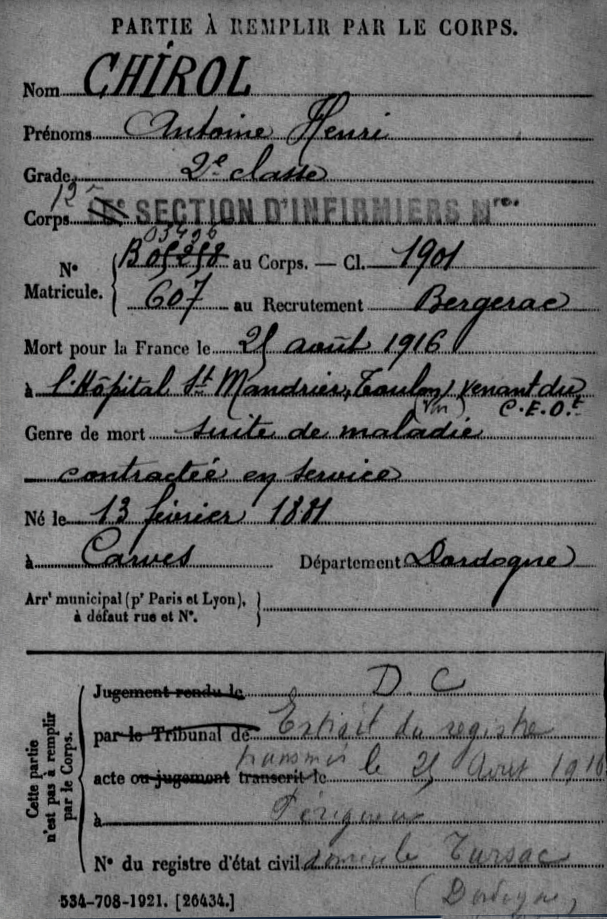 PARTIE À REMPLIR PAR LE CORPS.
Nom CHIROL
Prénoms Antoine Henri
Grade 2e classe
12e
Corps SECTION D'INFIRMIERS Mres
03426
N° Matricule. B 05258 au Corps. — Cl. 1901
607 au Recrutement Bergerac
Mort pour la France le 25 août 1916
à l'Hôpital St Mandrier, Toulon, venant du
(Var) C.E.O.t
Genre de mort suite de maladie
contractée en service
Né le 13 février 1881
à Carves Département Dordogne
Arrt municipal (pr Paris et Lyon), à défaut rue et N°.
Cette partie n'est pas à remplir par le Corps.
Jugement rendu le D. C
par le Tribunal de Extrait du registre
transmis
acte ou jugement transcrit le le 25 Août 1916
à Périgueux
N° du registre d'état civil Tursac
(Dordogne)
534-708-1921. [26434.]